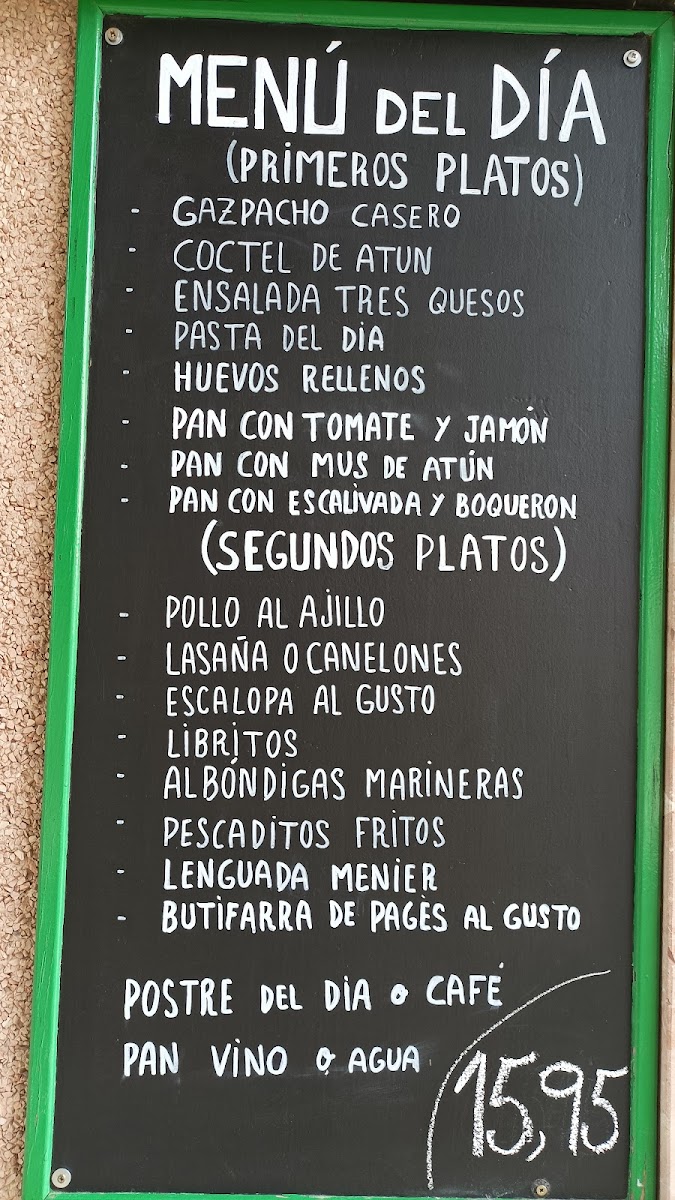 MENÚ DEL DÍA
(PRIMEROS PLATOS)
- GAZPACHO CASERO
- COCTEL DE ATUN
- ENSALADA TRES QUESOS
- PASTA DEL DIA
- HUEVOS RELLENOS
- PAN CON TOMATE Y JAMÓN
- PAN CON MUS DE ATÚN
- PAN CON ESCALIVADA Y BOQUERON
(SEGUNDOS PLATOS)
- POLLO AL AJILLO
- LASAÑA O CANELONES
- ESCALOPA AL GUSTO
- LIBRITOS
- ALBÓNDIGAS MARINERAS
- PESCADITOS FRITOS
- LENGUADA MENIER
- BUTIFARRA DE PAGÈS AL GUSTO
POSTRE DEL DIA o CAFÉ
PAN VINO o AGUA
15,95